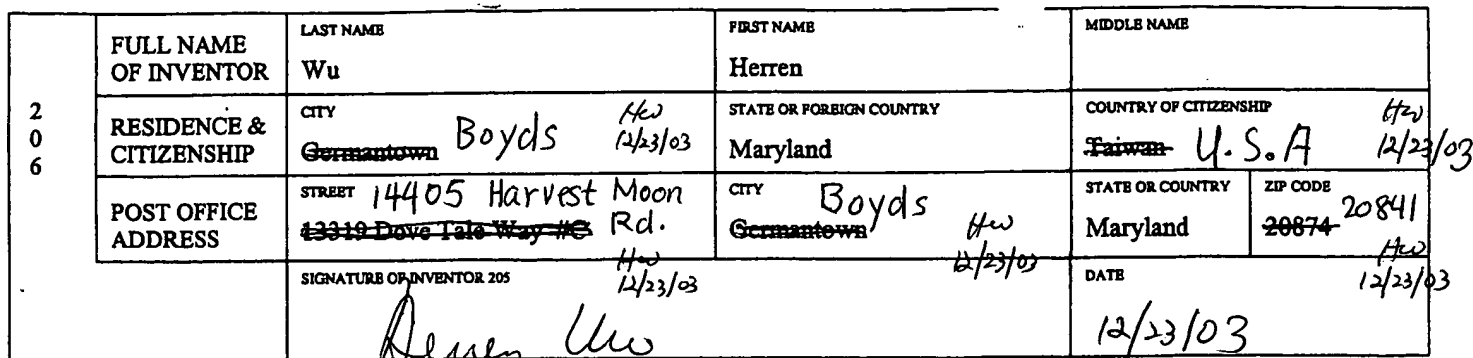 2
0
6
FULL NAME
OF INVENTOR
LAST NAME
Wu
FIRST NAME
Herren
MIDDLE NAME
RESIDENCE &
CITIZENSHIP
CITY
Germantown Boyds
HW
12/23/03
STATE OR FOREIGN COUNTRY
Maryland
COUNTRY OF CITIZENSHIP
Taiwan U.S.A
HW
12/23/03
POST OFFICE
ADDRESS
STREET 14405 Harvest Moon
13319 Dove Tale Way #C Rd.
HW
12/23/03
CITY
Boyds
Germantown
HW
12/23/03
STATE OR COUNTRY
Maryland
ZIP CODE
20841
20874
HW
12/23/03
SIGNATURE OF INVENTOR 205
Herren Wu
DATE
12/23/03